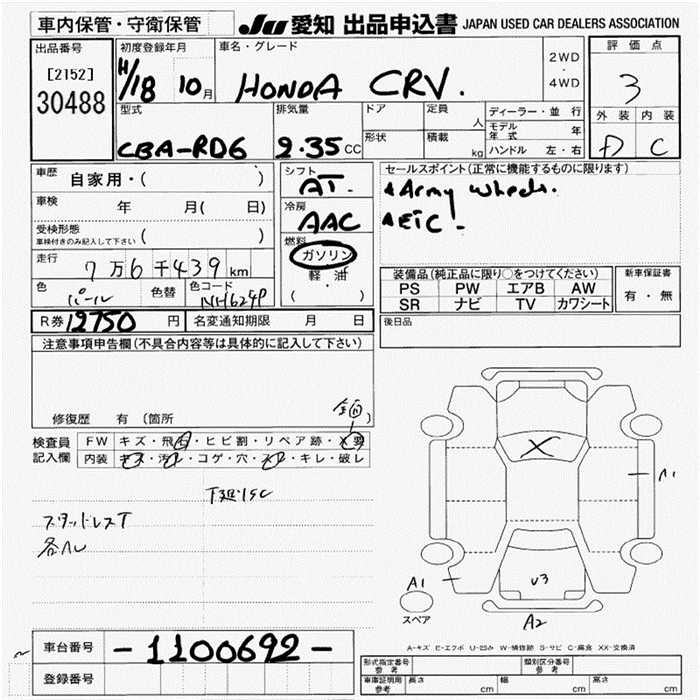 車内保管・守衛保管 JU 愛知 出品申込書 JAPAN USED CAR DEALERS ASSOCIATION
出品番号 初度登録年月 車名・グレード 2WD ・ 4WD 評価点
[2152] H/18 10月 HONDA CRV. 3
30488 外装 内装
型式 排気量 ドア 定員 人 ディーラー・並行
モデル年式 年
CBA-RD6 2.35 CC 形状 積載 kg ハンドル 左・右 D C
車歴 自家用・( ) シフト AT. セールスポイント(正常に機能するものに限ります)
車検 年 月( 日) 冷房 AAC
受検形態 ( )
車検付きのみ記入して下さい
燃料 ガソリン・軽油 ( )
走行 7万6千439km
色 パール 色替 色コード NH624P
装備品(純正品に限り○をつけてください) 新車保証書
PS PW エアB AW 有・無
SR ナビ TV カワシート
R券 12750 円 名変通知期限 月 日 後日品
注意事項申告欄(不具合内容等は具体的に記入して下さい)
修復歴 有 (箇所 )
検査員 FW キズ・飛石・ヒビ割・リペア跡・X要
記入欄 内装 キズ・汚レ・コゲ・穴・スレ・キレ・破レ
スタッドレスT
各ヘル
X
A1
A1 U3
スペア A2
A-キズ E-エクボ U-凹み W-補修跡 S-サビ C-腐食 XX-交換済
車台番号 -1100692-
登録番号
形式指定番号 参考 類別区分番号 参考
車庫証明用 参考 長さ cm 幅 cm 高さ cm